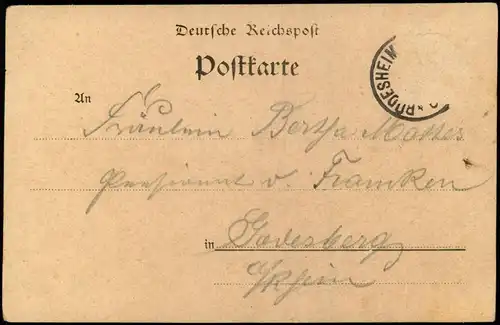 Deutsche Reichspost
Postkarte
RÜDESHEIM
An
Fräulein Bertha Mottes
Pensionat v. Francken
in Godesberg
a/Rhein